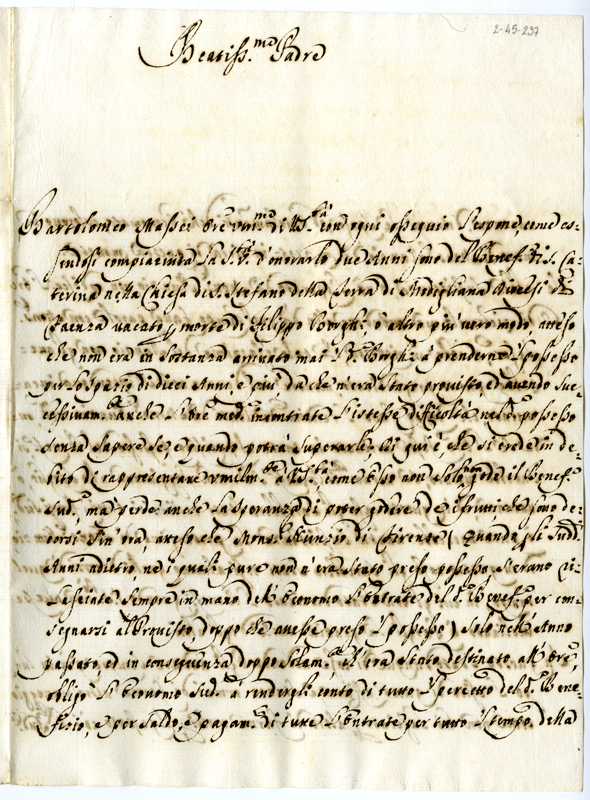 2-45-237
Beatiss.mo Padre
Bartolomeo Massei Ore umil.mo di V.S.tà con ogni ossequio l'espone, come es-
sendosi compiaciuta la S.V.tà d'onorarlo due Anni sono del Benef.o di S. Ca-
terina nella Chiesa di S. Stefano della Terra di Modigliana Diocesi di
Faenza vacato p morte di Filippo Borghi, ò altro più vero modo, atteso
che non era in sostanza arrivato mai il d.o Borghi à prenderne il possesso
per lo spazio di dieci Anni, e più, da che n'era stato provisto, ed avendo suc-
cessivam.te anche l'Ore med.o incontrate l'istesse dificoltà nel d.o possesso
senza sapere se, e quando potrà superarle; Di qui è, che si crede in de-
bito di rappresentare umilm.te à V.S.tà, come esso non solo non gode il Benef.o
sud.o, mà perde anche la speranza di poter godere de i frutti che sono de-
corsi sin'ora, atteso che Mons.r Nunzio di Firenze (quando p li sudd.i
Anni adietro, ne i quali pure non n'era stato preso possesso s'erano ri-
lasciate sempre in mano dell'Economo l'Entrate del d.o Benef.o per con-
segnarsi al Provisto, doppo che avesse preso il possesso) solo nell'Anno
passato, ed in conseguenza doppo solam.te ch'era stato destinato all'Ore,
obligò l'Economo sud.o à rendergli conto di tutto il percetto del d.o Bene-
fizio, e per saldo, e pagam.to di tutte l'Entrate per tutto il tempo della